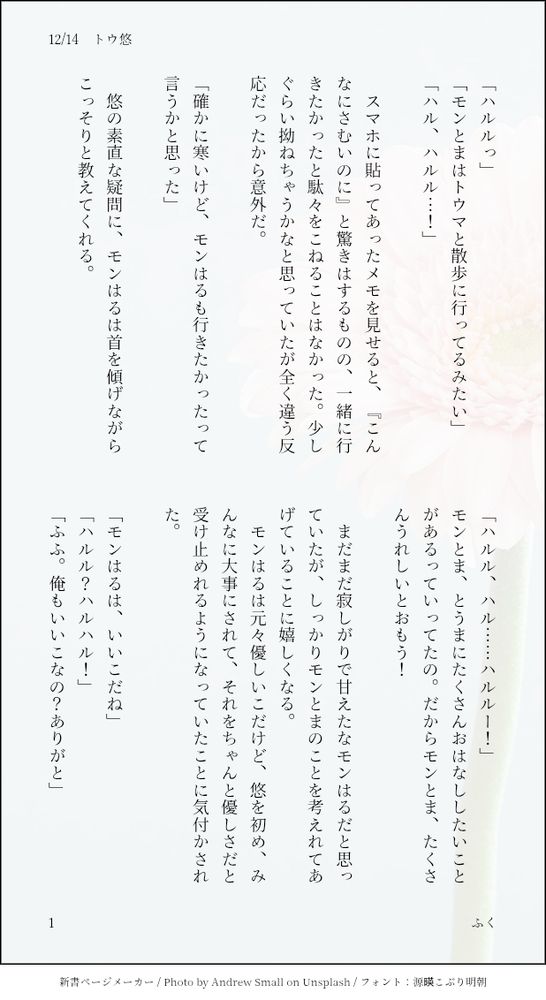 12/14　トウ悠
「ハルルっ」
「モンとまはトウマと散歩に行ってるみたい」
「ハル、ハルル…！」
　スマホに貼ってあったメモを見せると、『こん
なにさむいのに』と驚きはするものの、一緒に行
きたかったと駄々をこねることはなかった。少し
ぐらい拗ねちゃうかなと思っていたが全く違う反
応だったから意外だ。
「確かに寒いけど、モンはるも行きたかったって
言うかと思った」
　悠の素直な疑問に、モンはるは首を傾げながら
こっそりと教えてくれる。
「ハルル、ハル……ハルルー！」
モンとま、とうまにたくさんおはなししたいこと
があるっていってたの。だからモンとま、たくさ
んうれしいとおもう！
　まだまだ寂しがりで甘えたなモンはるだと思っ
ていたが、しっかりモンとまのことを考えれてあ
げていることに嬉しくなる。
　モンはるは元々優しいこだけど、悠を初め、み
んなに大事にされて、それをちゃんと優しさだと
受け止めれるようになっていたことに気付かされ
た。
「モンはるは、いいこだね」
「ハルル？ハルハル！」
「ふふ。俺もいいこなの？ありがと」
1
ふく
新書ページメーカー / Photo by Andrew Small on Unsplash / フォント：源暎こぶり明朝